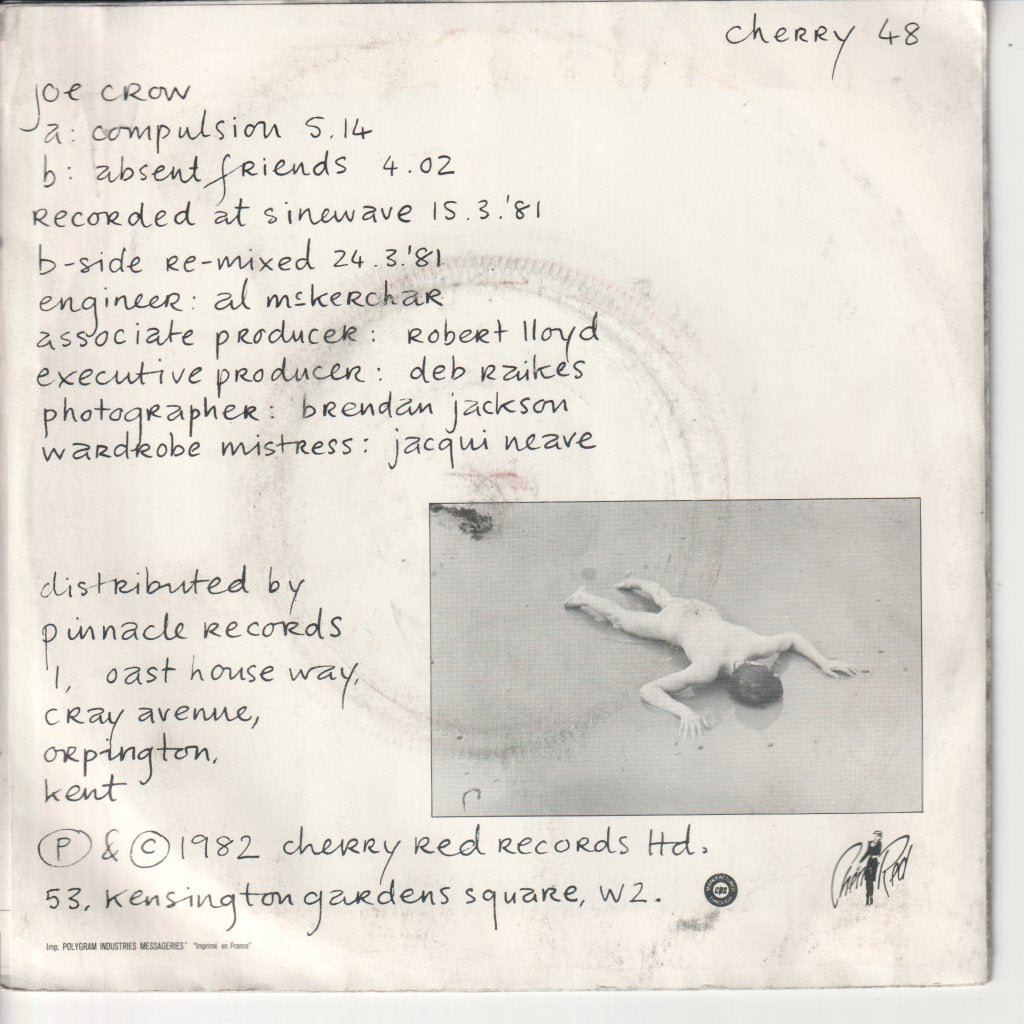 cherry 48
joe crow
a: compulsion 5.14
b: absent friends 4.02
recorded at sinewave 15.3.'81
b-side re-mixed 24.3.'81
engineer: al mckerchar
associate producer: robert lloyd
executive producer: deb raikes
photographer: brendan jackson
wardrobe mistress: jacqui neave
distributed by
pinnacle records
1, oast house way,
cray avenue,
orpington,
kent
Ⓟ & © 1982 cherry red records ltd.
53, kensington gardens square, W2.
MANUFACTURED
CBS
THROUGH
Cherry Red
Imp. POLYGRAM INDUSTRIES MESSAGERIES" "Imprimé en France"